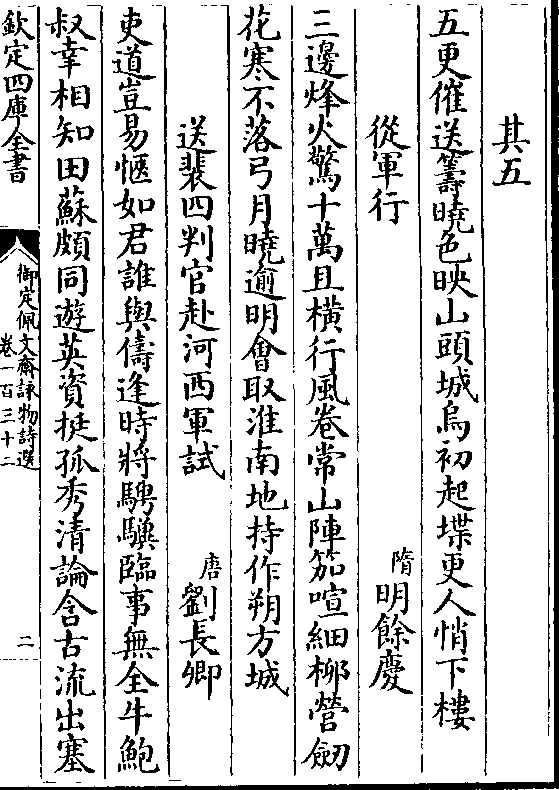 其五
五更催送籌曉色映山頭城烏初起堞更人悄下樓
從軍行
隋明餘慶
三邊烽火驚十萬且横行風卷常山陣笳喧細柳營劒
花寒不落弓月曉逾明會取淮南地持作朔方城
送裴四判官赴河西軍試
唐劉長卿
吏道豈易惬如君誰與儔逢時將騁驥臨事無全牛鮑
叔幸相知田蘇頗同遊英資挺孤秀清論含古流出塞
欽定四庫全書
御定佩文齋詠物詩選
卷一百三十二
二